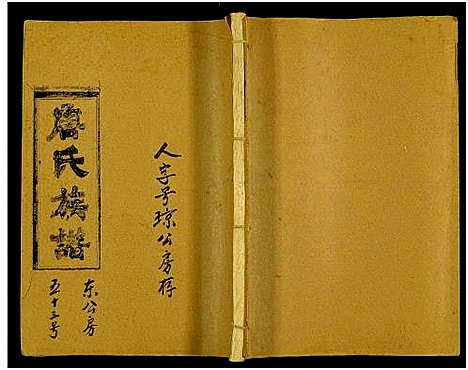 人字号琼公房存
唐氏族谱
东公房
五十三号